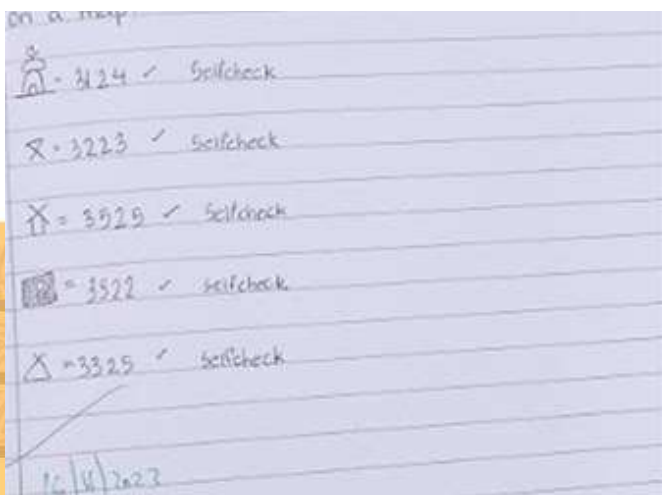 on a map
= 3124 ✓ Selfcheck
= 3223 ✓ Selfcheck
= 3525 ✓ Selfcheck
= 3522 ✓ Selfcheck
= 3325 ✓ Selfcheck